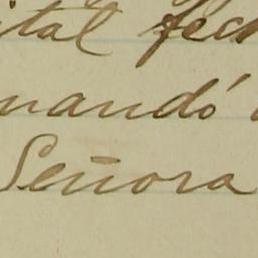 ital fech
mandó
Señora